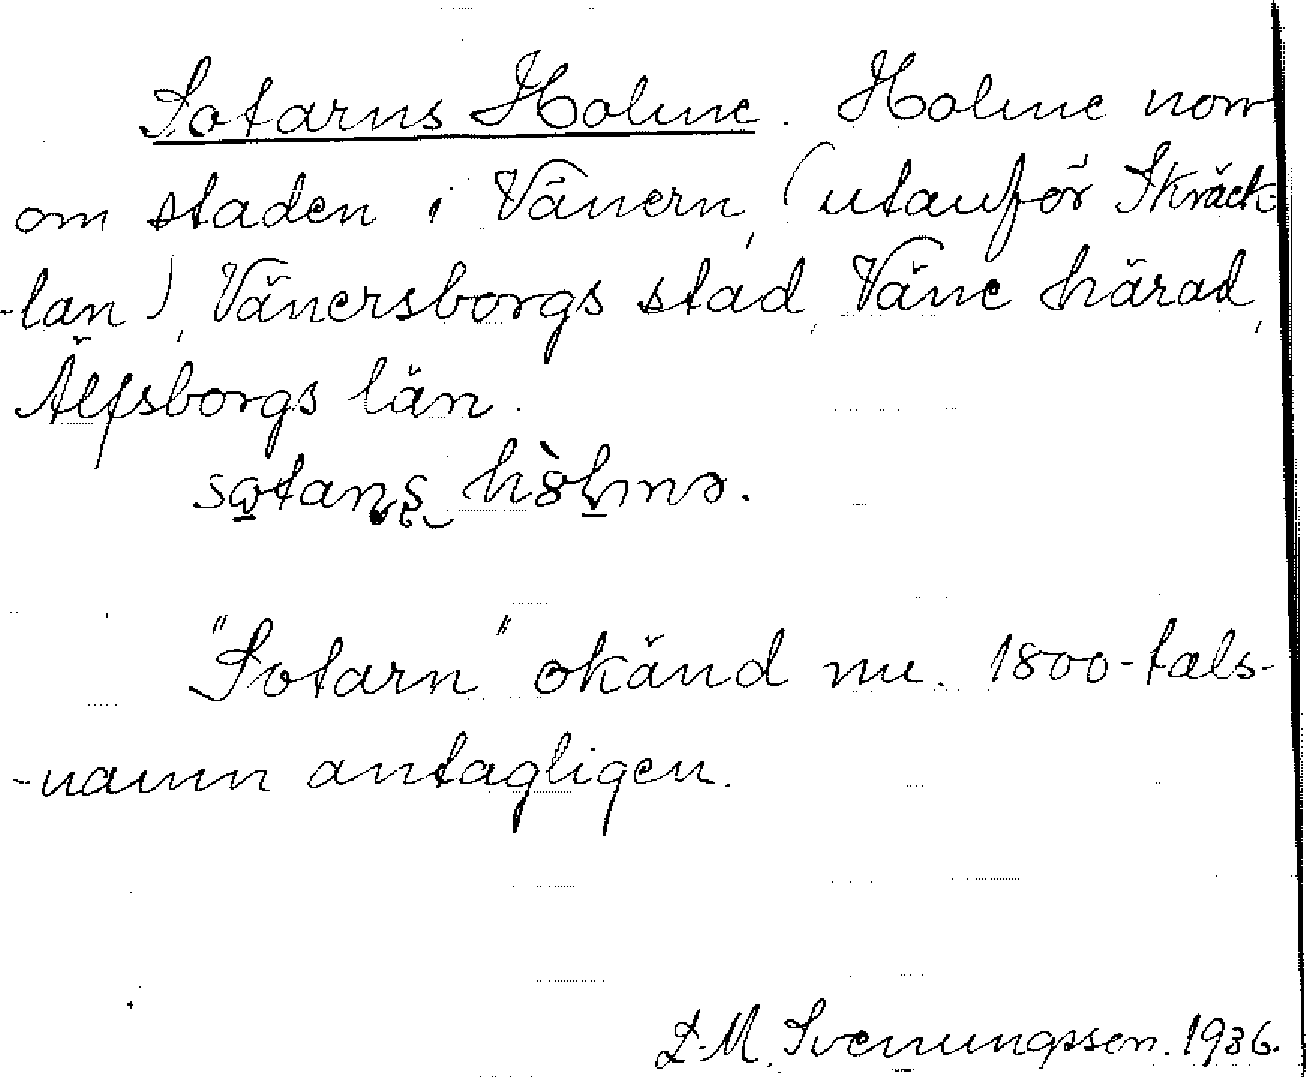 Sotarns Holme. Holme norr
om staden i Vänern, (utanför Skräck-
-lan), Vänersborgs stad, Väne härad,
Älfsborgs län.
"Sotarn" okänd nu. 1800-tals-
-namn antagligen.
D.M. Svenungsson. 1936.